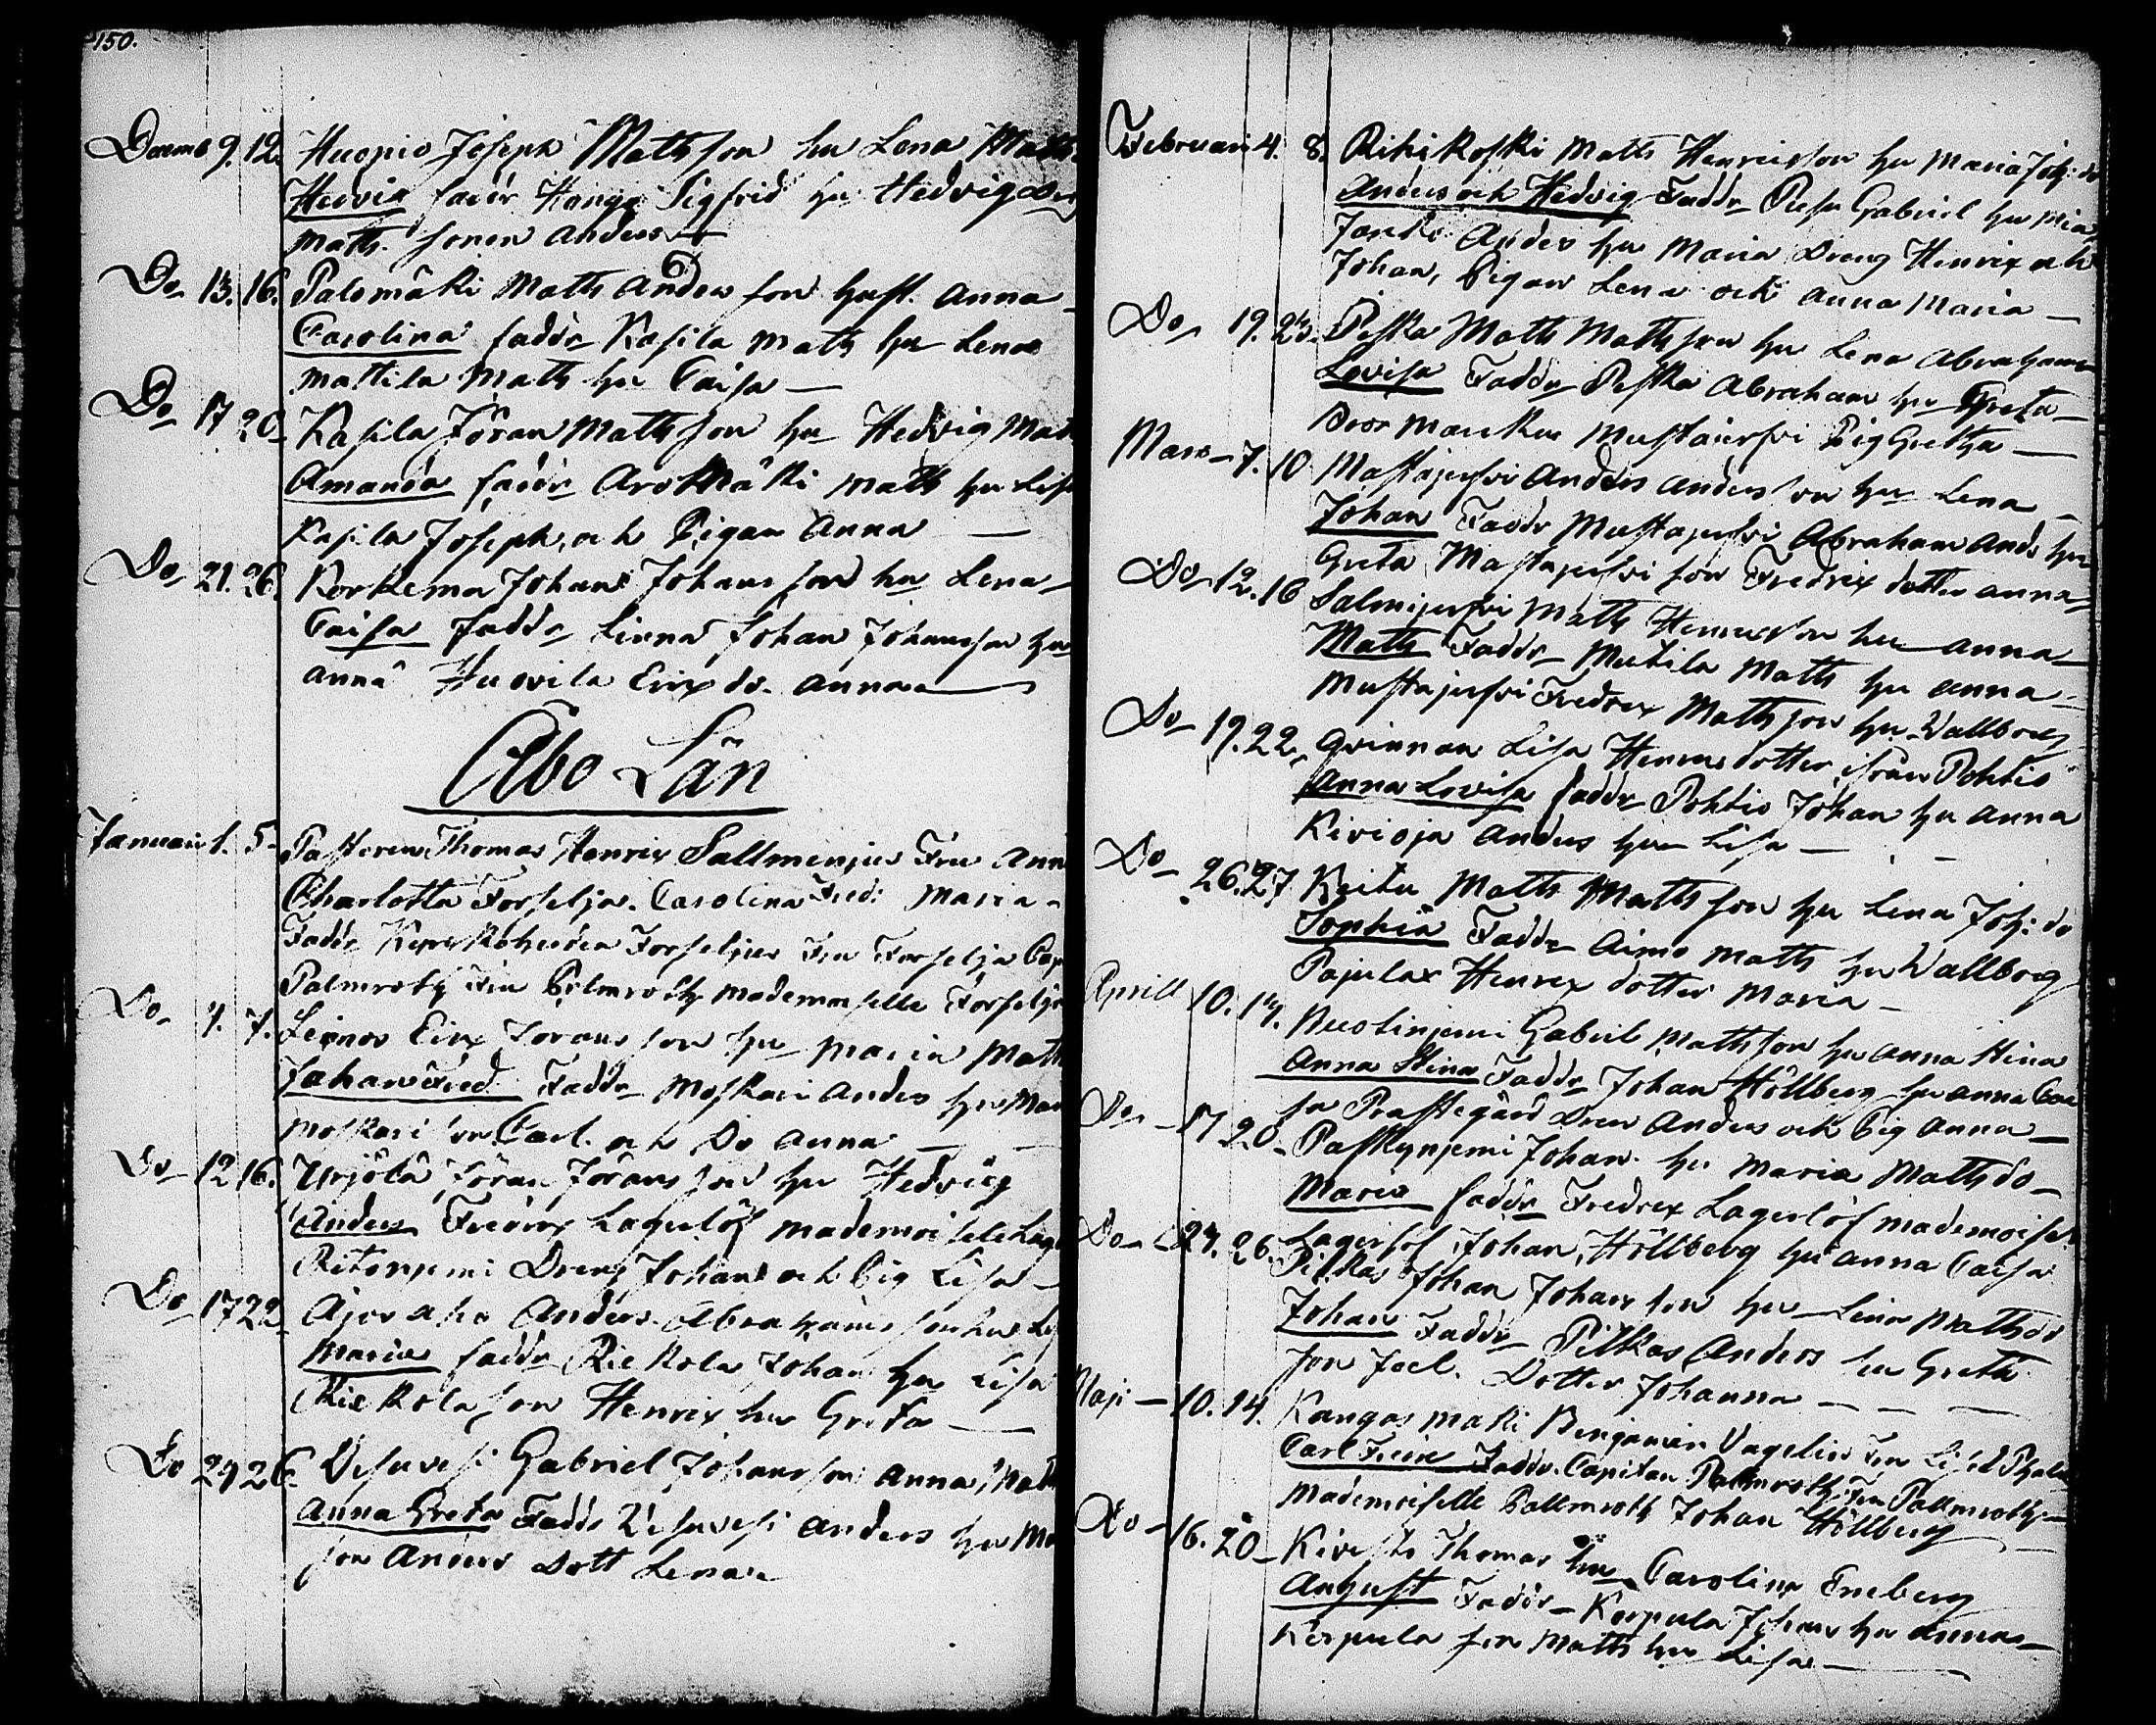 150.
Decemb 9. 12. Huopio Joseph Mathsson hu Lena Maths
Hedvix fadór Kango Sigfrid hu Hedvig
Maths sonen Anders
Do 13. 16. Palomäki Maths Anders son hust. Anna
Carolina faddr Kasila Maths hu Lena
Mattila Maths hu Caisa
Do 17 20 Kasila Jöran Mathsson hu Hedvig
Amanda faddr Aromäki Math hu Lisa
Kasila Joseph, och Pigan Anna
Do 21. 26. Korkema Johans Johansson hu Lena
Caisa faddr Linna Johan Johansson hu
Anna Huovila Erix do. Anna
Åbo Län
Januari 1. 5. Pastoren Thomas Henrix Sallmenius Fru Ann
Charlotta Forselja. Carolina Fred: Maria
Faddr Forseljus Fru Forselja Cap
Palmroth Fru Palmroth Mademoiselle Forselja
Do 4. 7. Leinos Erix Joransson hu Maria Maths
Johan Fred Faddr Moskari Anders hu Mar
Moskari son Carl. och Do Anna
Do 12 16. Yrjölä Jöran Jöransson hu Hedvig
Anders Fredrix Lagerlöf Mademoisele Lag
Ritoniemi Dreng Johan och Pig Lisa
Do 17 22. Anders Abrahamsson hu
Maria faddr Riekola Johan hu Lisa
Riekola son Henrix hu Greta
Do 24 26. Vesuvesi Gabriel Johansson Anna Maths
Anna Greta Fadds Vesuvesi Anders hu Ma
son Anders Dott Lena
Februari 4. 8. Rihikoski Maths Henricsson hu Maria Joh: do
Anders och Hedvig Faddr Gabriel hu Mia
Anders hu Maria Dreng Henrix och
Johan, Pigan Lena och Anna Maria
Do 19. 23. Peska Maths Mathsson hu Lena Abrahams
Lovisa Faddr Peska Abraham hu Greta
Markus Pig Gretha
Mars 7. 10 Mustajersvi Anders Andersson hu Lena
Johan Faddr Mustajersvi Abraham Ands hu
Greta Mustajersvi son Fredrix dotter Anna
Do 12. 16 Salmijersvi Maths Henricsson hu Anna
Maths Faddr Mutila Maths hu Anna
Mustajersvi Fredrix Mathsson hu Wallborg
Do 19. 22. Qvinnan Lisa Henricsdotter ifrån Pohtio
Anna Lovisa faddr Pohtio Johan hu Anna
Kivioja Anders hu Lisa
Do 26. 27 Keitu Maths Mathsson hu Lena Joh: do
Sophia Faddr Aimo Maths hu Wallborg
Pajulax Henrix dotter Maria
Aprill 10. 14. Gabriel Mathsson hu Anna Stina
Anna Stina Faddr Johan Höllberg hu Anna Cai
sa Prästegård Dren Anders och Pig Anna
Do 17 20 Johan hu Maria Maths do
Maria faddr Fredrix Lagerlöf Mademoisel
Lagerlöf Johan, Höllberg hu Anna Caisa
Do 24. 26. Pilkas Johan Johansson hu Lena Maths do
Johan Faddr Pilkas Anders hu Greta
son Joel. Dotter Johanna
Maji 10. 14. Kangasmäki Benjamin Vagelin Fru
Carl Faddr. Capitan Palmroth Fru Pallmroth
Mademoiselle Pallmroth Johan Höllberg
Do 16. 20 Thomas hu Carolina Eneberg
August Faddr Korpula Johan hu Anna
Korpula son Maths hu Lisa